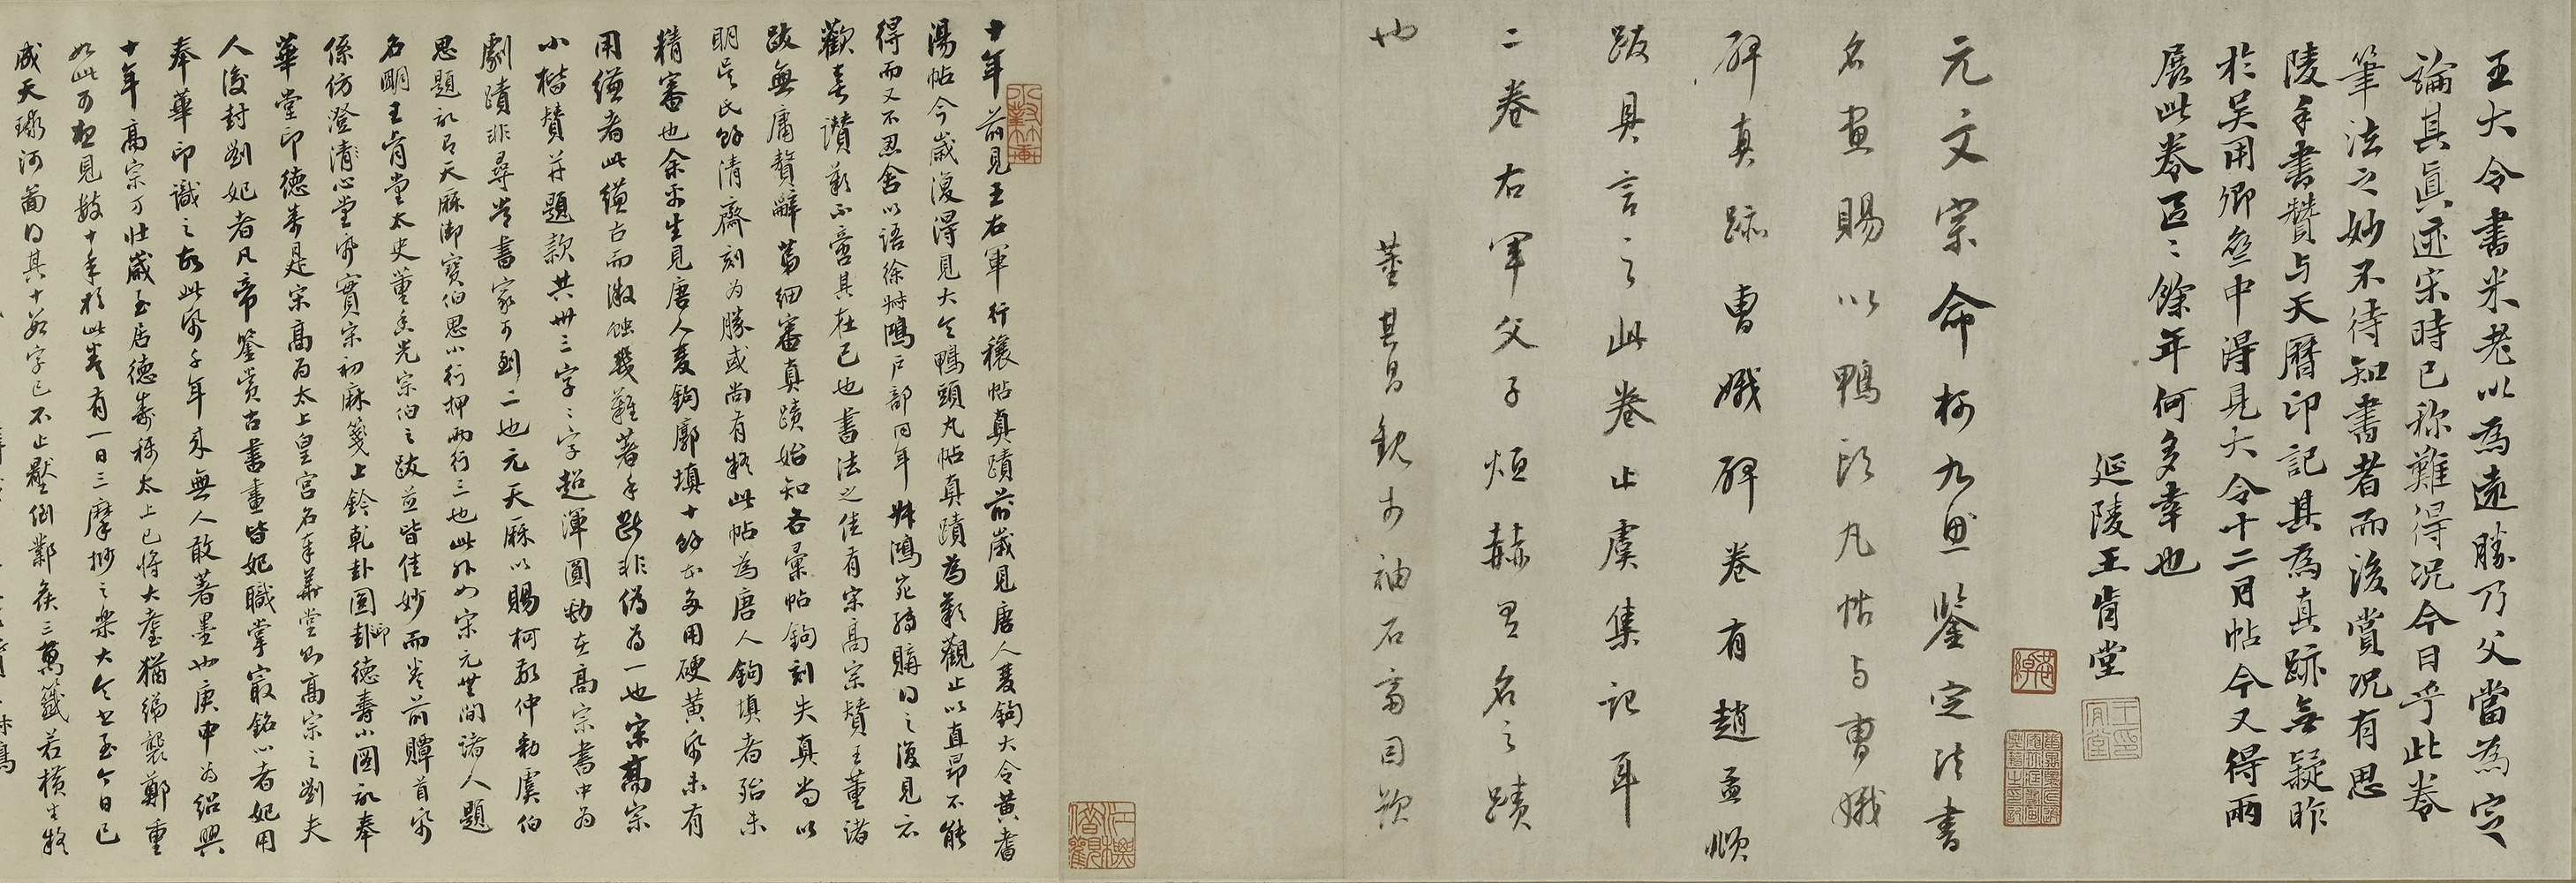 王大令書米老以為遠勝乃父當為定
論其真迹宋時已称難得况今日乎此卷
筆法之妙不待知書者而後賞况有思
陵手書贊与天曆印記其為真跡無疑昨
於吴用卿處中得見大令十二月帖今又得兩
展此卷區〻餘年何多幸也
延陵王肯堂
元文宗命柯九思鑒定法書
名畫賜以鴨頭丸帖与曹娥
碑真跡曹娥碑卷有趙孟頫
跋具言之此卷止虞集記耳
二卷右軍父子烜赫有名之蹟
也
董其昌観於袖石齋因題
十年前見王右軍行穰帖真蹟前歲見唐人雙鉤大令黄耆
湯帖今歲復得見大令鴨頭丸帖真蹟為歎觀止以直昂不能
得而又不忍舍以語徐 鴻戶部同年 鴻宛轉購得之復見示
歡喜讚歎不啻其在己也書法之佳有宋高宗贊王董諸
跋無庸贅辭 細審真蹟始知各彙帖鉤刻失真尚以
明吴氏餘清齋刻為勝或尚有疑此帖為唐人鉤填者殆未
精審也余平生見唐人雙鉤廓填十餘本多用硬黄紙未有
用縑者此縑古而微蝕幾難著手斷非偽為一也宋高宗
小楷贊并題款共卅三字字字超渾圓勁在高宗書中為
劇蹟非尋常書家可到二也元天厤以賜柯敬仲勅虞伯
思題記占天厤御寶伯思小行押兩行三也此外如宋元世間諸人題
名明王肯堂太史董香光宗伯之跋並皆佳妙而卷前贉首紙
係仿澄清心堂紙實宋初麻箋上鈐乾卦圓印德壽小璽記奉
華堂印德壽是宋高為太上皇宫名奉華堂則高宗之劉夫
人後封劉妃者凡帝鑒賞古書畫皆妃職掌最銘心者妃用
奉華印識之故此紙千年來無人敢著墨也庚申為紹興
十年高宗方壯歲至居德壽稱太上已將大耋猶綈襲鄭重
如此可想見數十年於此卷有一日三摩挲之樂大令书至今日已
成天球河圖得其十數字已不止壓倒鄴侯三萬籤若橫生疑